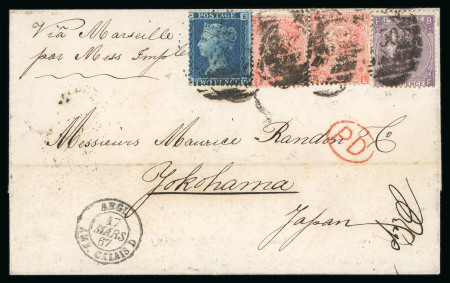 Via Marseille
par Mess Imple
POSTAGE
TWO PENCE
Messieurs Maurice Randon & Co
PD
Yokohama
Japan
ANGL.
17
MARS
67
AMB. CALAIS D